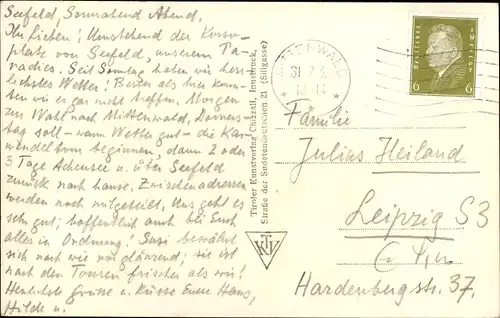 Seefeld, Sonnabend Abend.
Ihr Lieben! Umstehend der Kurso-
platz von Seefeld, unserem Pa-
radies. Seit Sonntag haben wir herr-
lichstes Wetter! Besser als hier konn-
ten wir es gar nicht treffen. Morgen
zur Wahl nach Mittenwald, Donners-
tag soll - wann Wetter gut - die Kar-
wendeltour beginnen, dann 2 oder
3 Tage Achensee u. über Seefeld
zurück nach hause. Zwischenadressen
werden noch mitgeteilt. Uns geht es
sehr gut; hoffentlich auch bei Euch
alles in Ordnung! Susi bewährt
sich nach wie vor glänzend; sie ist
nach den Touren frischer als wir!
Herzlichste Grüsse u. Küsse Eure Hans,
Hilde u.
Tiroler Kunstverlag Chizzali, Innsbruck,
Straße der Sudetendeutschen 21 (Sillgasse)
KTV
31.7.
Deutsches Reich
6 6
Familie
Julius Heiland
Leipzig S3
Hardenbergstr. 37.